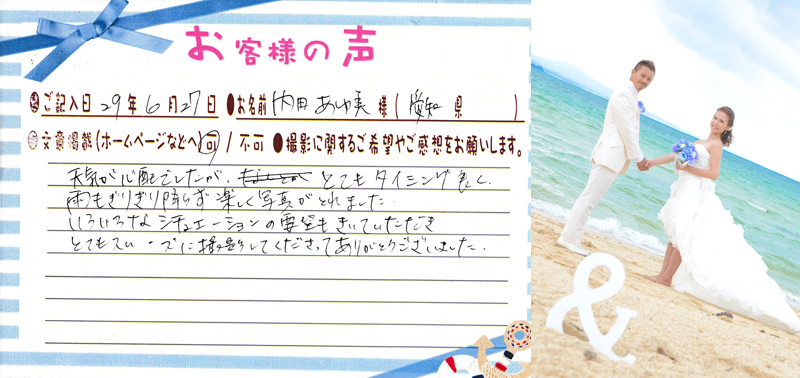 お客様の声
●ご記入日 29年 6月27日 ●お名前 内田 あゆ美 様 ( 愛知 県 )
●文章掲載(ホームページなどへ) 可 / 不可 ●撮影に関するご希望やご感想をお願いします。
天気が心配でしたが、とてもタイミング良く、
雨もぎりぎり降らず楽しく写真がとれました。
いろいろなシチュエーションの要望もきいていただき
とてもスムーズに撮影してくださってありがとうございました。
&